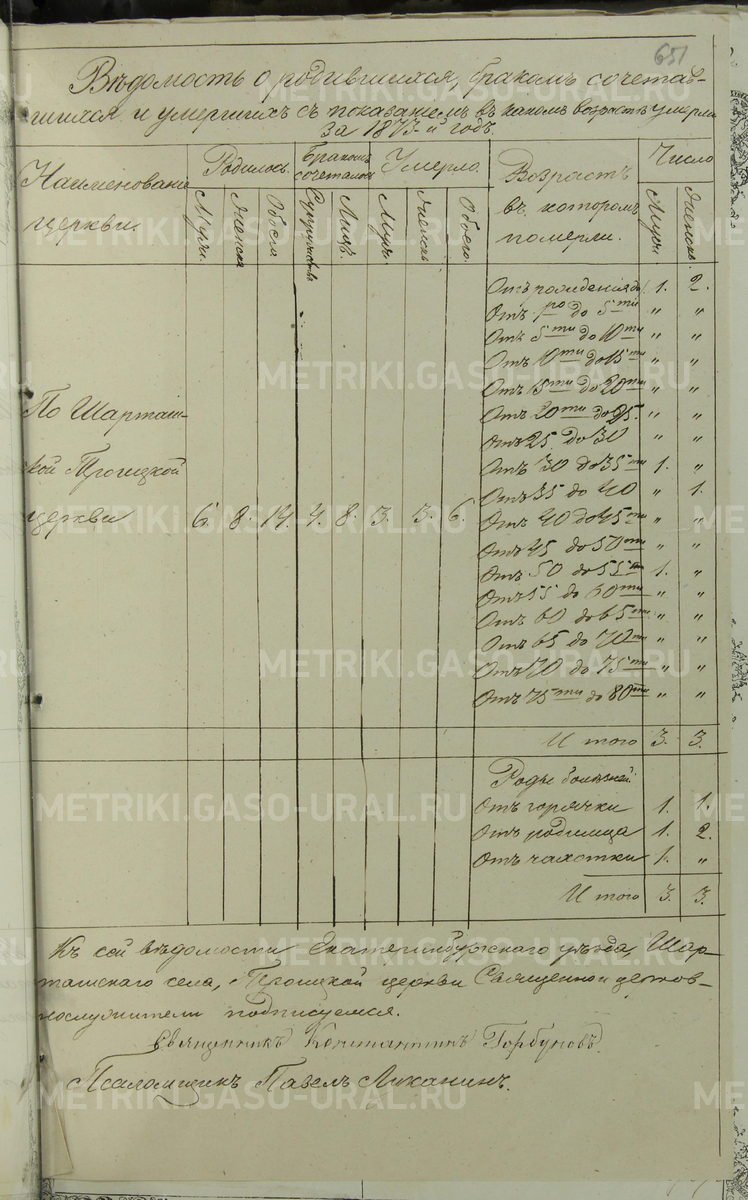 651
Вѣдомость о родившихся, бракомъ сочетав-
шихся и умершихъ съ показанiемъ въ какомъ возрастѣ умерли
за 1873-й годъ.
Наименованiе церкви.
Родилось.
Бракомъ сочеталось
Умерло.
Возрастъ въ которомъ померли.
Число
Муж. Женска Обоего Супружествъ Лицъ Муж. Женскъ Обоего. Муж. Женскъ
Отъ рожденiя до 1. 2.
Отъ го до 5ти " "
Отъ 5ти до 10ти " "
Отъ 10ти до 15ти " "
Отъ 15ти до 20ти " "
Отъ 20ти до 25. " "
Отъ 25. до 30 " "
Отъ 30 до 35ти 1. "
Отъ 35 до 40 " 1.
По Шарташ-
кой Троицкой
церкви 6. 8. 14. 4. 8. 3. 3. 6. Отъ 40 до 45ти " "
Отъ 45 до 50ти " "
Отъ 50 до 55ти 1. "
Отъ 55 до 60ти " "
Отъ 60 до 65ти " "
Отъ 65 до 70ти " "
Отъ 70 до 75ти " "
Отъ 75ти до 80ти " "
Итого 3. 3.
Роды болѣзней.
Отъ горячки 1. 1.
Отъ родимца 1. 2.
Отъ чахотки 1. "
Итого 3. 3.
Къ сей вѣдомости Екатеринбургскаго уѣзда, Шар-
ташскаго села, Троицкой церкви Священно и церков-
нослужители подписуемся.
Священникъ Константинъ Горбуновъ.
Псаломщикъ Павелъ Луканинъ.
METRIKI.GASO-URAL.RU